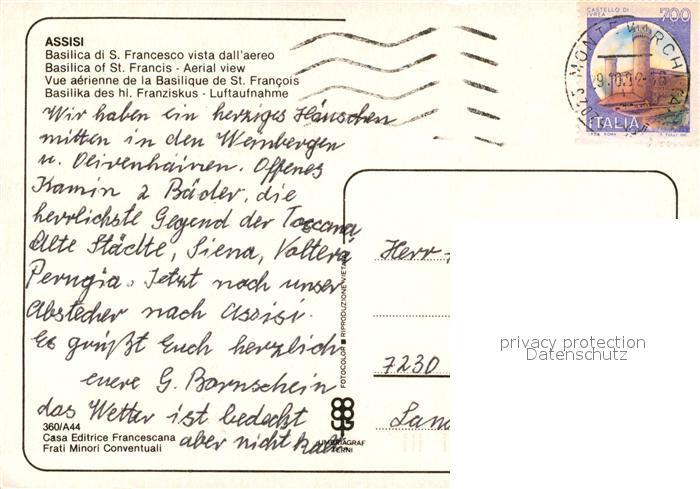 ASSISI
Basilica di S. Francesco vista dall'aereo
Basilica of St. Francis - Aerial view
Vue aérienne de la Basilique de St. François
Basilika des hl. Franziskus - Luftaufnahme
Wir haben ein herziges Häuschen
mitten in den Weinbergen
u. Olivenhainen. Offenes
Kamin 2 Bäder, die
herrlichste Gegend der Toscana
Alte Städte, Siena, Voltera
Perugia. Jetzt noch unser
Abstecher nach Assisi.
Es grüßt Euch herzlich
euere G. Bornschein
das Wetter ist bedeckt
aber nicht kalt.
360/A44
Casa Editrice Francescana
Frati Minori Conventuali
FOTOCOLOR ■ RIPRODUZIONE VIETATA
UMBRIAGRAF
TERNI
CASTELLO DI
IVREA
700
ITALIA
Herr
7230
privacy protection
Datenschutz